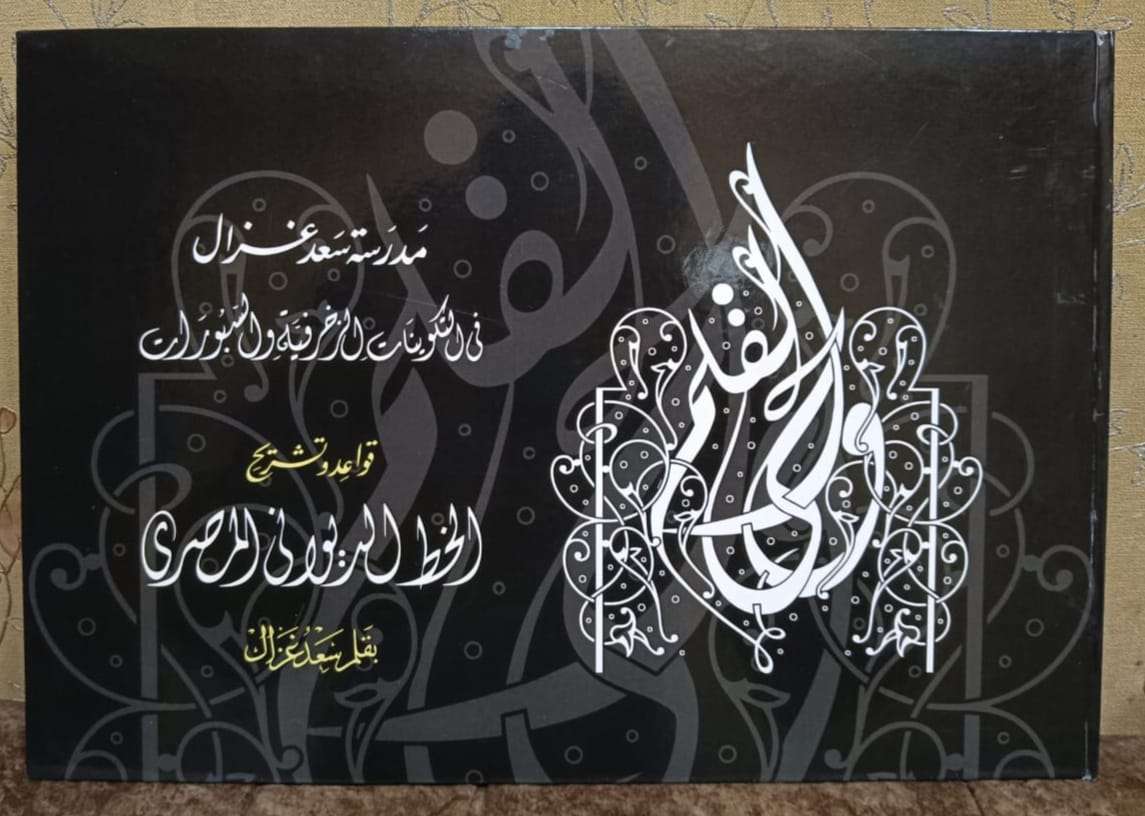 مَدرَسَة سَعد غزال
فى التكوينات الزخرفيَّة والسَّبُورَات
قواعد وتشريح
الخط الديوانى المصرى
بقَلم سَعد غزال